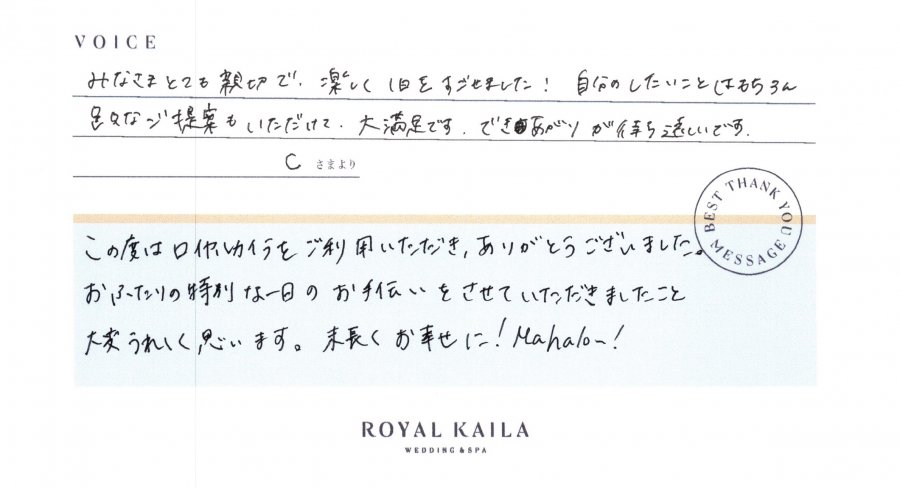 VOICE
みなさまとても親切で、楽しく1日をすごせました! 自分のしたいことはもちろん
色々なご提案もいただけて、大満足です。できあがりが待ち遠しいです。
C さまより
BEST THANK YOU MESSAGE
この度はロイヤルカイラをご利用いただき、ありがとうございました。
おふたりの特別な一日のお手伝いをさせていただきましたこと
大変うれしく思います。末長くお幸せに!Mahalo~!
ROYAL KAILA
WEDDING & SPA